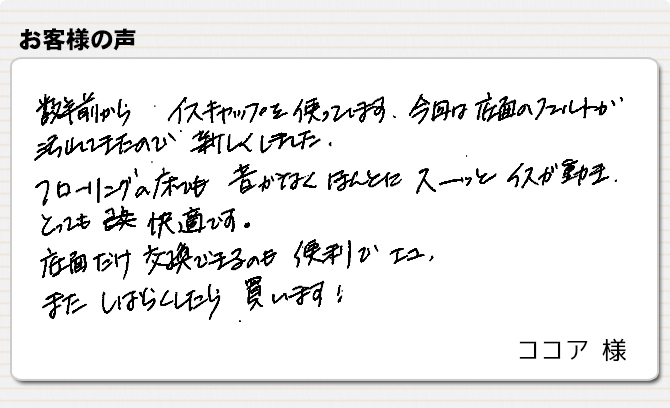 お客様の声
数年前から イスキャップを使っています。今回は底面のフェルトが
汚れてきたので 新しくしました。
フローリングの床でも 音がなく ほんとに スーっと イスが動き、
とっても 快適です。
底面だけ 交換できるのも 便利で エコ。
また しばらくしたら 買います！
ココア 様